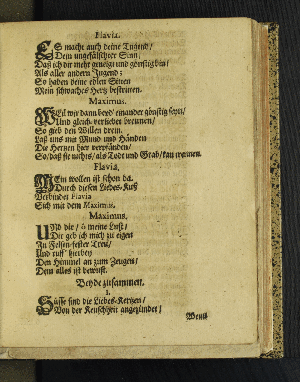 Flavia.
ES macht auch deine Tugend/
Dein ungefälschter Sinn/
Daß ich dir mehr geneigt und günstig bin/
Als aller andern Jugend;
So haben deine edlen Sitten
Mein schwaches Hertz bestritten.
Maximus.
WEil wir dann beyd' einander günstig seyn/
Und gleich-verliebet brennen/
So gieb den Willen drein.
Laß uns mit Mund und Händen
Die Hertzen hier verpfänden/
So/daß sie nichts/als Todt und Grab/kan trennen.
Flavia.
MEin wollen ist schon da.
Durch diesen Liebes-Kuß
Verbindet Flavia
Sich mit dem Maximus.
Maximus.
UNd dir/ ô meine Lust/
Dir geb ich mich zu eigen
In Felsen-fester Treu/
Und ruff' hierbey
Den Himmel an zum Zeugen/
Dem alles ist bewust.
Beyde zusammen.
1.
SÜsse sind die Liebes-Kertzen/
Von der Keuschheit angezündet/
Wenn